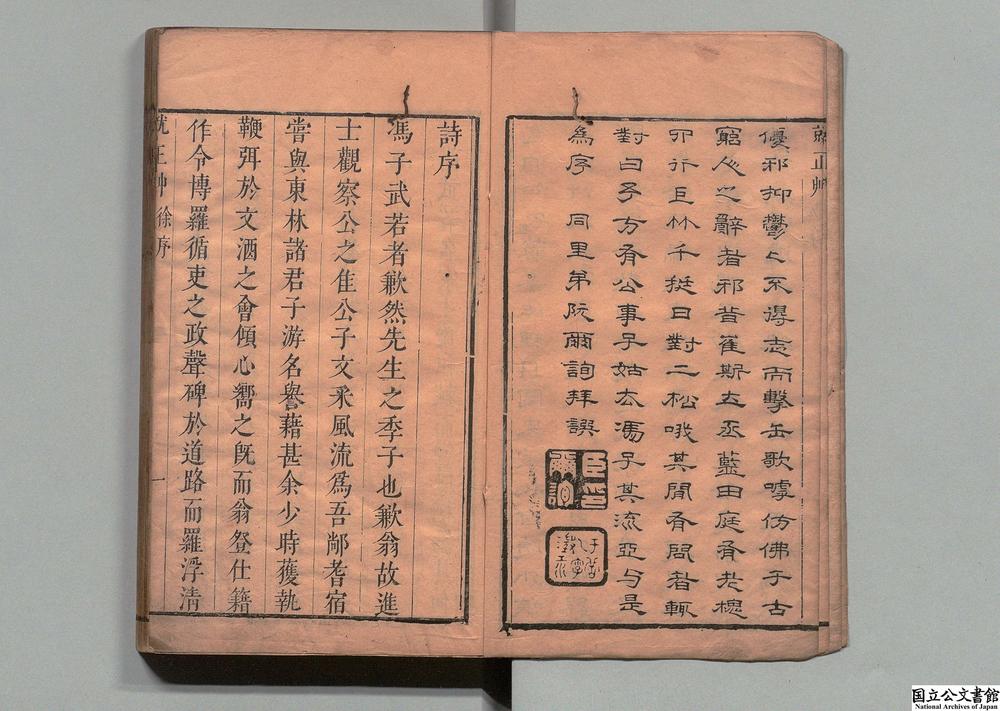 就正艸
優邪抑鬱〻不得志而擊缶歌嘑仿佛于古
窮人之辭者邪昔崔斯立丞藍田庭有老槐
四行巨竹千挺日對二松哦其間有問者輒
對曰予方有公事子姑去馮子其流亞与是
為序　同里弟阮爾詢拜譔
臣印爾詢
詩序
馮子武若者歉然先生之季子也歉翁故進
士觀察公之佳公子文采風流爲吾鄉耆宿
嘗與東林諸君子游名譽藉甚余少時獲執
鞭弭於文酒之會傾心嚮之旣而翁登仕籍
作令博羅循吏之政聲碑於道路而羅浮清
就正艸　徐序　一
国立公文書館
National Archives of Japan